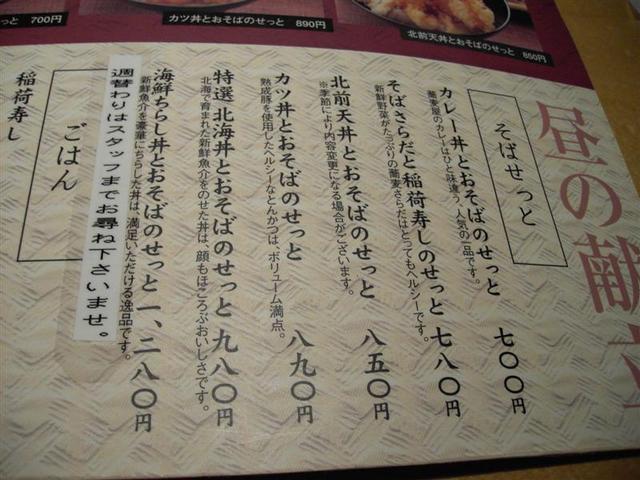 せっと 700円
カツ丼とおそばのせっと 890円
北前天丼とおそばのせっと 850円
昼の献立
そばせっと
カレー丼とおそばのせっと 七〇〇円
蕎麦屋のカレーはひと味違う、人気の一品です。
そばさらだと稲荷寿しのせっと 七八〇円
新鮮野菜がたっぷりの蕎麦さらだはとってもヘルシーです。
北前天丼とおそばのせっと 八五〇円
※季節により内容変更になる場合がございます。
カツ丼とおそばのせっと 八九〇円
熟成豚を使用したヘルシーなとんかつは、ボリューム満点。
特選 北海丼とおそばのせっと 九八〇円
北海で育まれた新鮮魚介をのせた丼は、顔もほころぶおいしさです。
海鮮ちらし丼とおそばのせっと 一、二八〇円
新鮮魚介を豪華にちらした丼は、満足いただける逸品です。
週替わりはスタッフまでお尋ね下さいませ。
ごはん
稲荷寿し